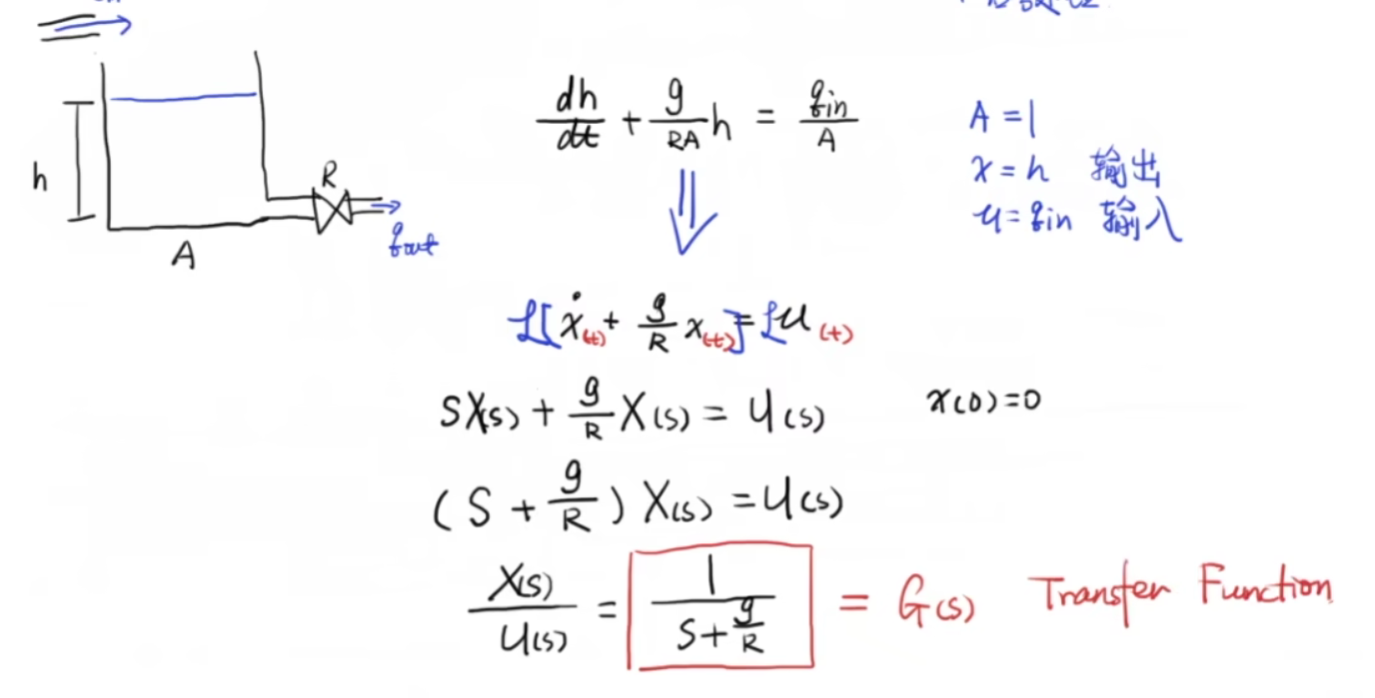 dh/dt + g/RA h = qin/A
A = 1
x = h 输出
u = qin 输入
h
R
qout
A
ℒ[ẋ(t) + g/R x(t)] = ℒu(t)
SX(s) + g/R X(s) = U(s)
x(0)=0
(S + g/R) X(s) = U(s)
X(s)/U(s) = 1/(S + g/R) = G(s) Transfer Function